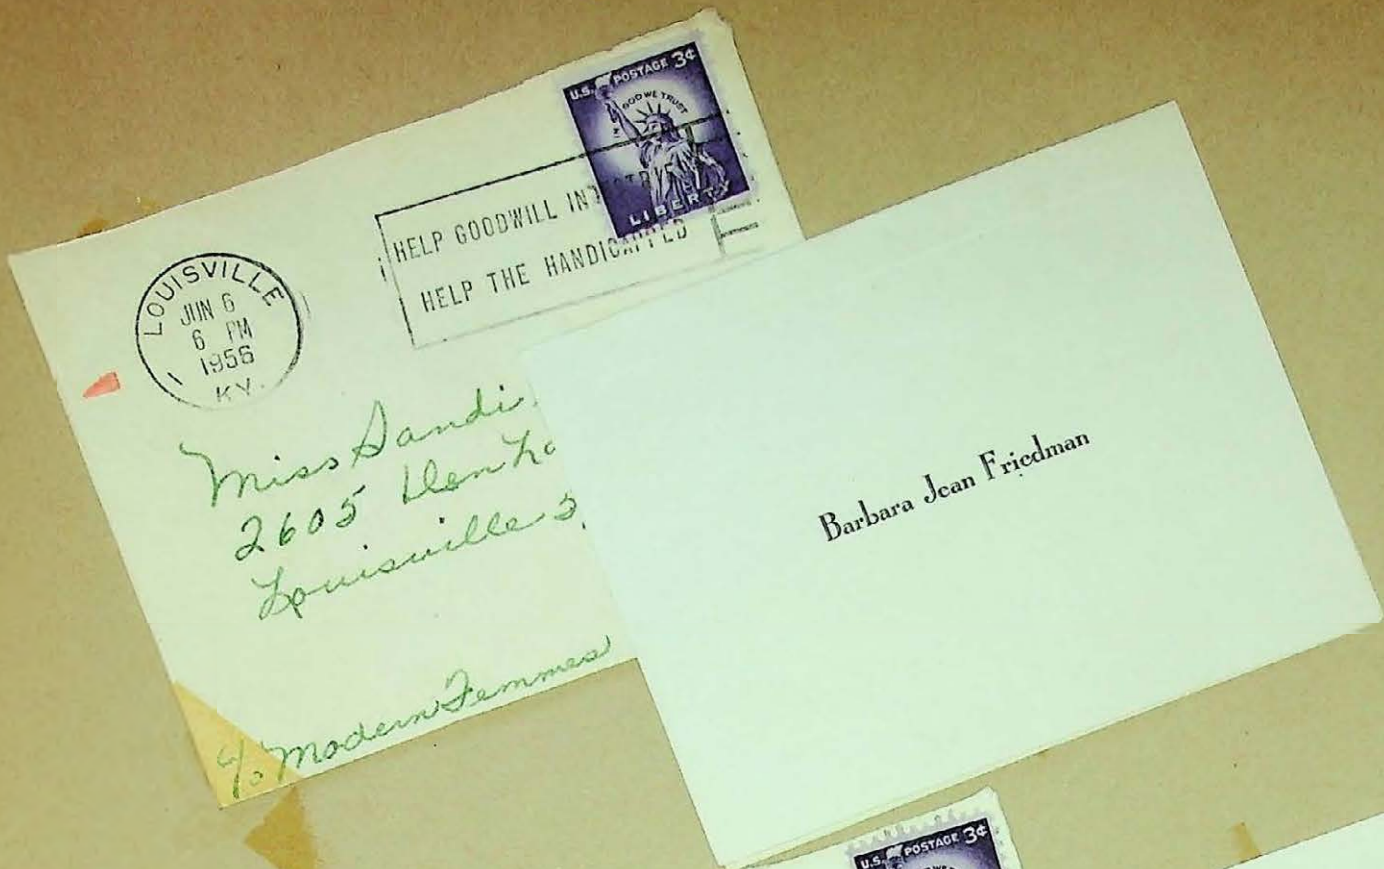 U.S. POSTAGE 3¢
IN GOD WE TRUST
LIBERTY
HELP GOODWILL INDUSTRIES
HELP THE HANDICAPPED
LOUISVILLE
JUN 6
6 PM
1956
KY.
Miss Sandi
2605
Louisville 5,
c/o Modern Femmes
Barbara Jean Friedman
U.S. POSTAGE 3¢